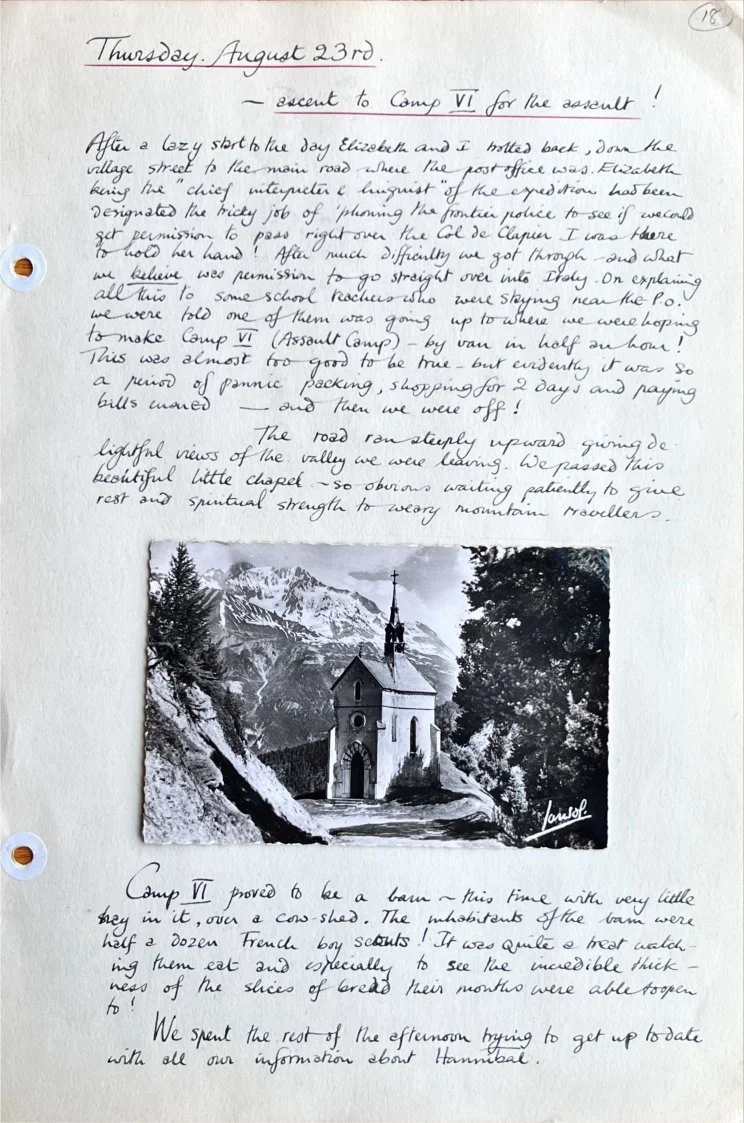 18
Thursday. August 23rd.
— ascent to Camp VI for the assault !
After a lazy start to the day Elizabeth and I trotted back, down the
village street to the main road where the post office was. Elizabeth
being the "chief interpreter & linguist" of the expedition had been
designated the tricky job of 'phoning the frontier police to see if we could
get permission to pass right over the Col de Clapier I was there
to hold her hand! After much difficulty we got through - and what
we believe was permission to go straight over into Italy. On explaining
all this to some school teachers who were staying near the P.O.
we were told one of them was going up to where we were hoping
to make Camp VI (Assault Camp) - by van in half an hour!
This was almost too good to be true - but evidently it was so
a period of pannic packing, shopping for 2 days and paying
bills ensued — and then we were off!
The road ran steeply upward giving de-
lightful views of the valley we were leaving. We passed this
beautiful little chapel - so obvious waiting patiently to give
rest and spiritual strength to weary mountain travellers.
Camp VI proved to be a barn ~ this time with very little
hay in it, over a cow-shed. The inhabitants of the barn were
half a dozen French boy scouts! It was quite a treat watch-
ing them eat and especially to see the incredible thick-
ness of the slices of bread their mouths were able to open
to!
We spent the rest of the afternoon trying to get up to date
with all our information about Hannibal.